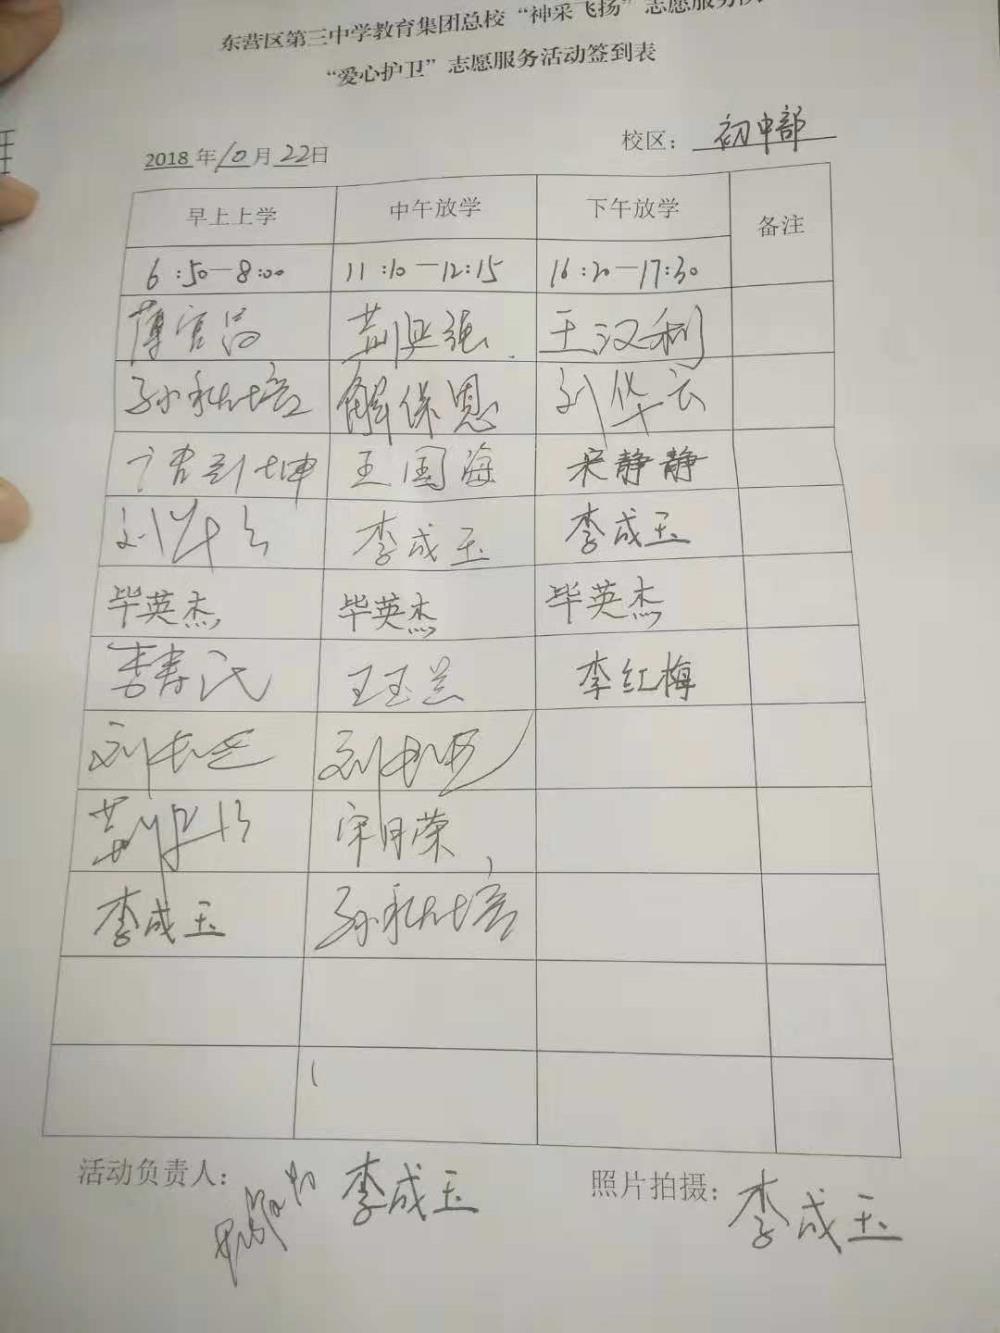 东营区第三中学教育集团总校“神采飞扬”志愿服务队
“爱心护卫”志愿服务活动签到表
2018年10月22日 校区：初中部
早上上学 中午放学 下午放学 备注
6:50-8:00 11:10-12:15 16:20-17:30
薄官昌 荆兴强 王汉利
孙秋培 解保恩 刘华云
王国海 宋静静
刘华云 李成玉 李成玉
毕英杰 毕英杰 毕英杰
李寿民 王玉兰 李红梅
宋月荣
李成玉 孙秋培
活动负责人： 李成玉 照片拍摄：李成玉